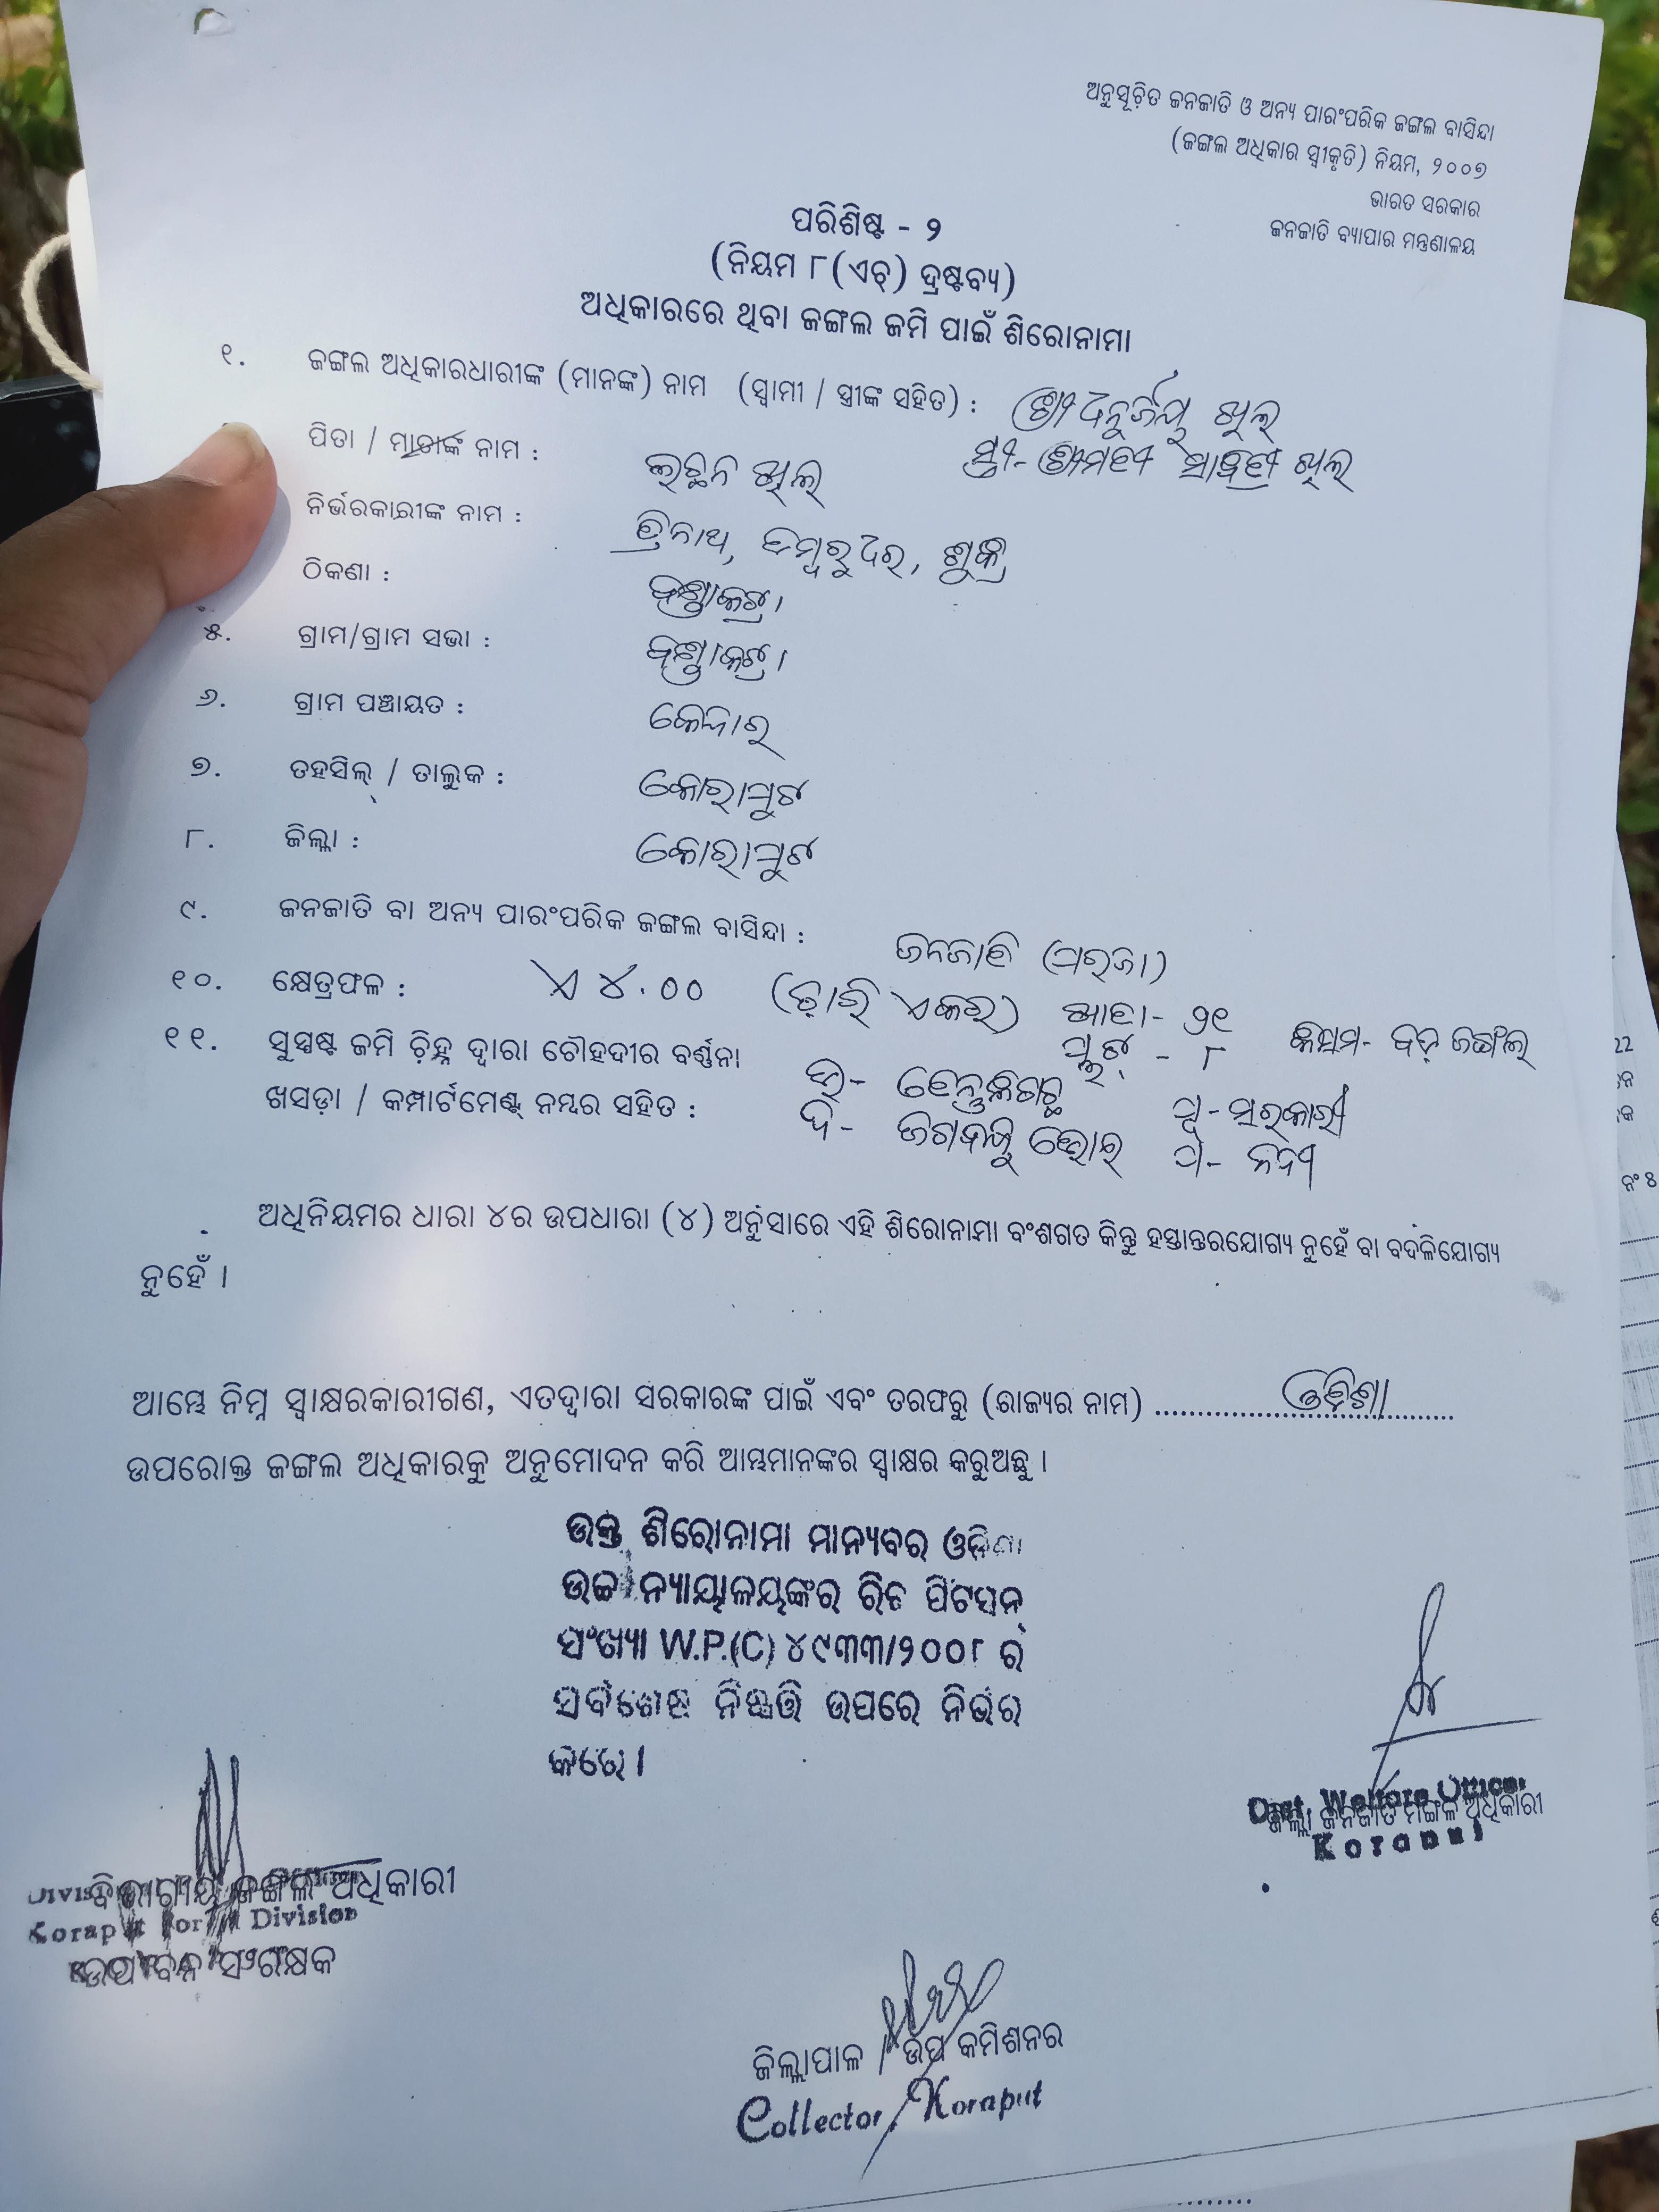 ଅନୁସୂଚିତ ଜନଜାତି ଓ ଅନ୍ୟ ପାରଂପରିକ ଜଙ୍ଗଲ ବାସିନ୍ଦା
(ଜଙ୍ଗଲ ଅଧିକାର ସ୍ୱୀକୃତି) ନିୟମ, ୨୦୦୭
ଭାରତ ସରକାର
ଜନଜାତି ବ୍ୟାପାର ମନ୍ତ୍ରଣାଳୟ
ପରିଶିଷ୍ଟ - ୨
(ନିୟମ ୮(ଏଚ୍) ଦ୍ରଷ୍ଟବ୍ୟ)
ଅଧିକାରରେ ଥିବା ଜଙ୍ଗଲ ଜମି ପାଇଁ ଶିରୋନାମା
୧. ଜଙ୍ଗଲ ଅଧିକାରଧାରୀଙ୍କ (ମାନଙ୍କ) ନାମ (ସ୍ୱାମୀ / ସ୍ତ୍ରୀଙ୍କ ସହିତ) : ଶ୍ରୀ ଖିଲ୍
ସ୍ତ୍ରୀ- ଶ୍ରୀମତୀ ଖିଲ୍
ପିତା / ମାତାଙ୍କ ନାମ : ଲଚ୍ଛନ ଖିଲ୍
ନିର୍ଭରକାରୀଙ୍କ ନାମ : ତ୍ରିନାଥ, ଶୁକ୍ର
ଠିକଣା :
୫. ଗ୍ରାମ/ଗ୍ରାମ ସଭା :
୬. ଗ୍ରାମ ପଞ୍ଚାୟତ : କେନ୍ଦାର୍
୭. ତହସିଲ୍ / ତାଲୁକ : କୋରାପୁଟ
୮. ଜିଲ୍ଲା : କୋରାପୁଟ
୯. ଜନଜାତି ବା ଅନ୍ୟ ପାରଂପରିକ ଜଙ୍ଗଲ ବାସିନ୍ଦା : ଜନଜାତି (ପରଜା)
୧୦. କ୍ଷେତ୍ରଫଳ : ଏ ୪.୦୦ (ଚାରି ଏକର) ଖାତା- ୨୧ କିସମ- ବଡ଼ ଜଙ୍ଗଲ
ପ୍ଲଟ୍ - ୮
୧୧. ସୁସ୍ପଷ୍ଟ ଜମି ଚିହ୍ନ ଦ୍ୱାରା ଚୌହଦୀର ବର୍ଣ୍ଣନା ଉ- ତେନ୍ତୁଳିଗଛ ପୂ- ସରକାରୀ
ଖସଡ଼ା / କମ୍ପାର୍ଟମେଣ୍ଟ୍ ନମ୍ବର ସହିତ : ଦ- ପ- ନଦୀ
ଅଧିନିୟମର ଧାରା ୪ର ଉପଧାରା (୪) ଅନୁସାରେ ଏହି ଶିରୋନାମା ବଂଶଗତ କିନ୍ତୁ ହସ୍ତାନ୍ତରଯୋଗ୍ୟ ନୁହେଁ ବା ବଦଳିଯୋଗ୍ୟ
ନୁହେଁ ।
ଆମ୍ଭେ ନିମ୍ନ ସ୍ୱାକ୍ଷରକାରୀଗଣ, ଏତଦ୍ୱାରା ସରକାରଙ୍କ ପାଇଁ ଏବଂ ତରଫରୁ (ରାଜ୍ୟର ନାମ) ........ ଓଡ଼ିଶା ........
ଉପରୋକ୍ତ ଜଙ୍ଗଲ ଅଧିକାରକୁ ଅନୁମୋଦନ କରି ଆମ୍ଭମାନଙ୍କର ସ୍ୱାକ୍ଷର କରୁଅଛୁ ।
ଉକ୍ତ ଶିରୋନାମା ମାନ୍ୟବର ଓଡ଼ିଶା
ଉଚ୍ଚ ନ୍ୟାୟାଳୟଙ୍କର ରିଟ ପିଟିସନ୍
ସଂଖ୍ୟା W.P.(C) ୪୯୩୩/୨୦୦୮ ର
ସର୍ବଶେଷ ନିଷ୍ପତ୍ତି ଉପରେ ନିର୍ଭର
କରେ ।
Dist. Welfare Officer
ଜିଲ୍ଲା ଜନଜାତି ମଙ୍ଗଳ ଅଧିକାରୀ
Koraput
ବିଭାଗୀୟ ଜଙ୍ଗଲ ଅଧିକାରୀ
Koraput Division
ଉପ ବନ ସଂରକ୍ଷକ
ଜିଲ୍ଲାପାଳ / ଉପ କମିଶନର
Collector, Koraput